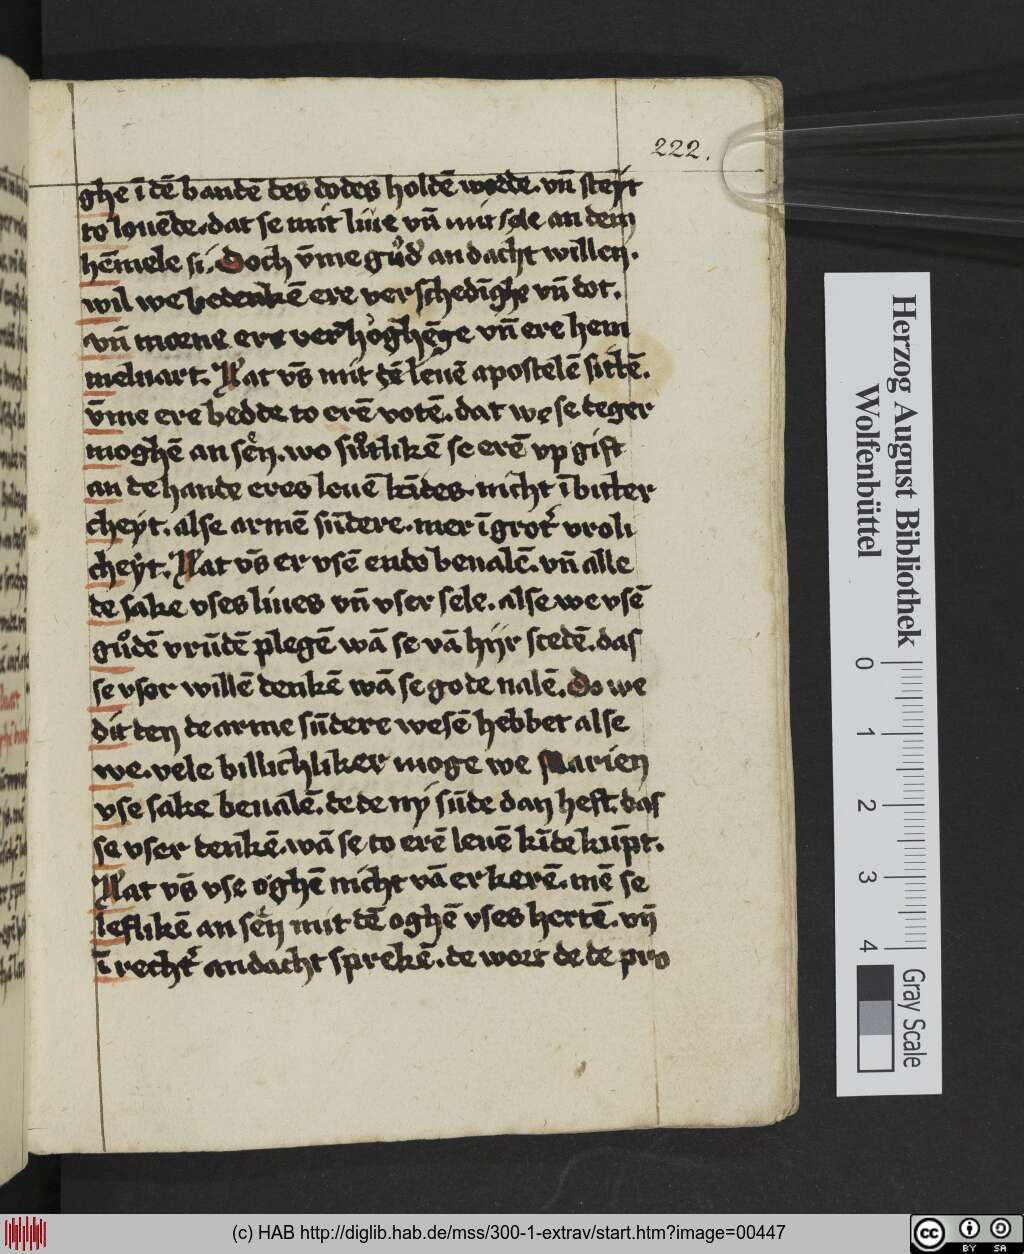 222.
ghe ī dē bandē des dodes holdē worde. vn̄ steyt
to louēde. dat se mit liue vn̄ mit sele an dem
hēmele si. Doch v̄me gůd̓ andacht willen.
wil we bedenkē ere verschedīghe vn̄ dot.
vn̄ mœne ere verhoghēge vn̄ ere hem
meluart. Lat vs̄ mit dē leuē apostelē sittē.
v̄me ere bedde to erē votē. dat we se deger
moghē an sēn. wo sůtlikē se erē vp gift
an de hande eres leuē kīdes. nicht ī bitter
cheyt. alse armē sūdere. mer ī grot̓ vroli
cheyt. Lat vs̄ er vsē endo beualē. vn̄ alle
de sake vses liues vn̄ vser sele. alse we vsē
gůdē vrūdē plegē wā se vā hyr scedē. das
se vser willē denkē wā se gode nalē. Do we
dit den de arme sūdere wesē hebbet alse
we. vele billichliker moge we Marien
vse sake beualē. de de ny sūde dan heft. das
se vser denkē. wā se to erē leuē kīde kūpt.
Lat vs̄ vse oghē nicht vā er kerē. mē se
leflikē an sēn mit dē oghē vses hertē. vn̄
ī recht̓ andacht sprekē. de wort de de pro
Herzog August Bibliothek
Wolfenbüttel
0 1 2 3 4
Gray Scale
(c) HAB http://diglib.hab.de/mss/300-1-extrav/start.htm?image=00447
cc BY SA